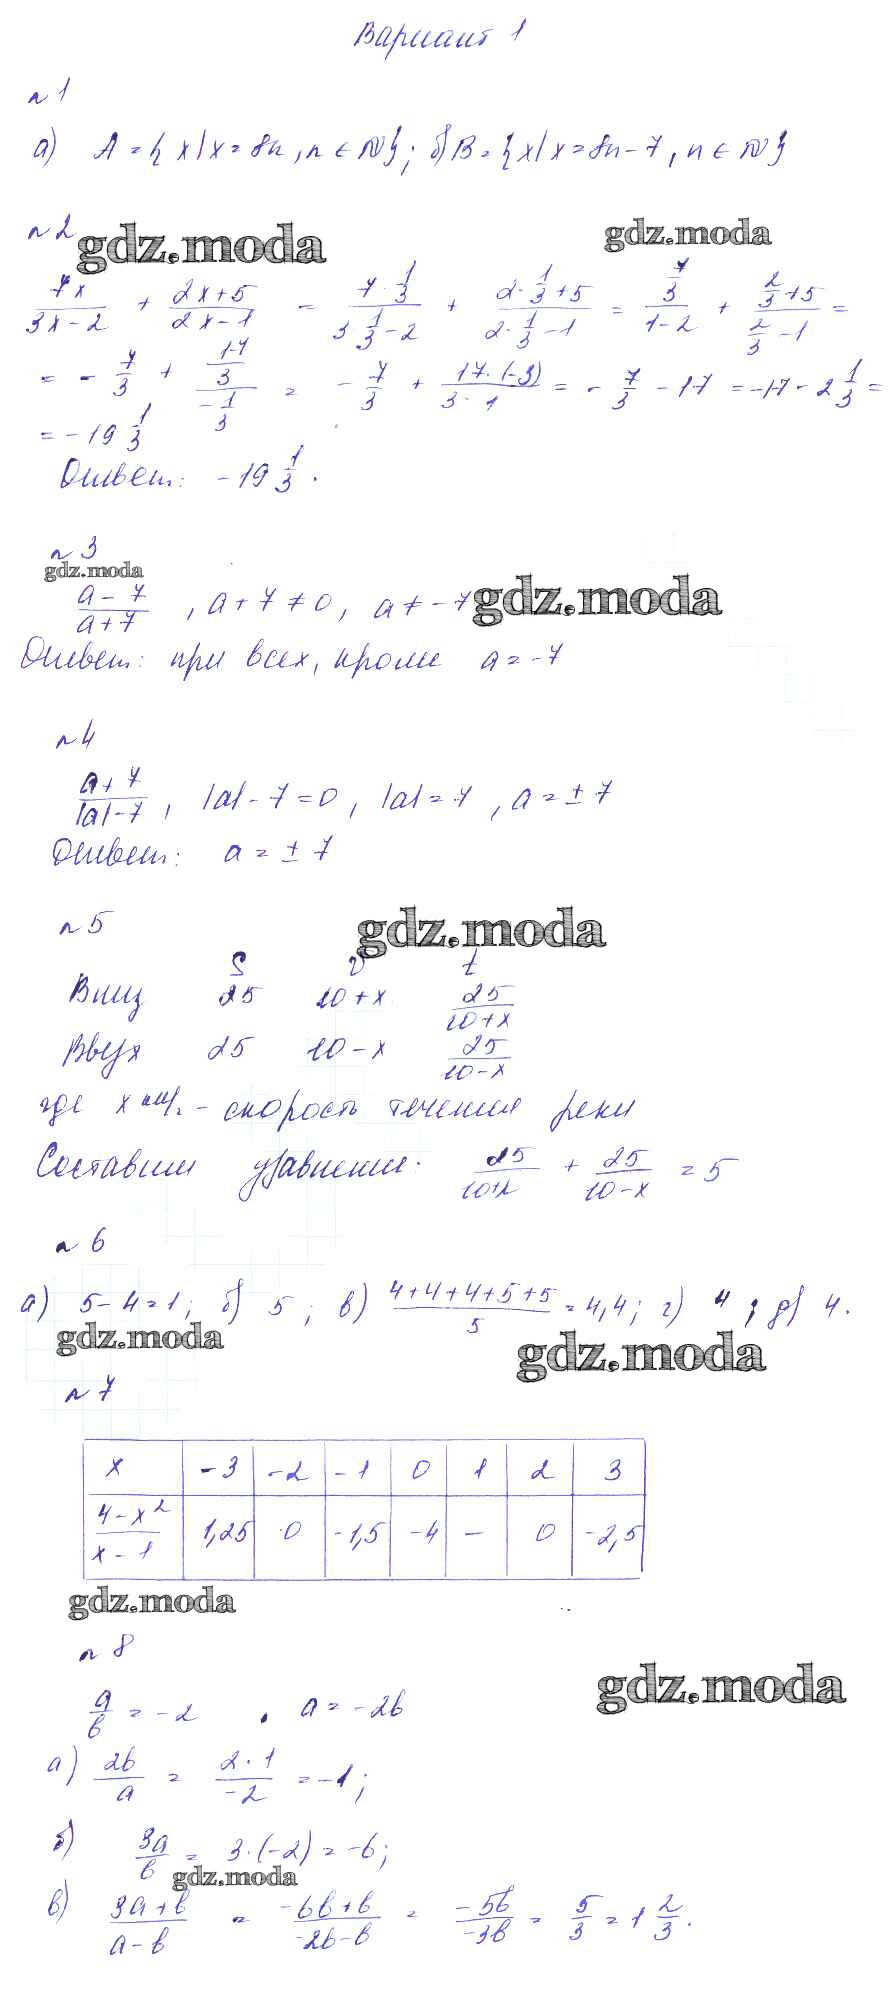 Вариант 1
n 1
а) A = { x | x = 8n, n ∈ N }; б) B = { x | x = 8n - 7, n ∈ N }
n 2
gdz.moda gdz.moda
7x/(3x-2) + (2x+5)/(2x-1) = (7·1/3)/(3·1/3-2) + (2·1/3+5)/(2·1/3-1) = (7/3)/(1-2) + (2/3+5)/(2/3-1) =
= - 7/3 + (17/3)/(-1/3) = - 7/3 + (17·(-3))/(3·1) = - 7/3 - 17 = -17 - 2 1/3 =
= -19 1/3
Ответ: -19 1/3.
n 3
gdz.moda
(a-7)/(a+7), a+7≠0, a≠-7 gdz.moda
Ответ: при всех, кроме a = -7
n 4
(a+7)/(|a|-7), |a|-7=0, |a|=7, a=±7
Ответ: a = ±7
n 5
gdz.moda
S v t
Вниз 25 10+x 25/(10+x)
Вверх 25 10-x 25/(10-x)
где x км/ч - скорость течения реки
Составим уравнение: 25/(10+x) + 25/(10-x) = 5
n 6
а) 5-4=1; б) 5; в) (4+4+4+5+5)/5 = 4,4; г) 4; д) 4.
gdz.moda gdz.moda
n 7
x -3 -2 -1 0 1 2 3
(4-x²)/(x-1) 1,25 0 -1,5 -4 — 0 -2,5
gdz.moda
n 8
gdz.moda
a/b = -2 . a = -2b
а) 2b/a = (2·1)/(-2) = -1;
б) 3a/b = 3·(-2) = -6;
gdz.moda
в) (3a+b)/(a-b) = (-6b+b)/(-2b-b) = (-5b)/(-3b) = 5/3 = 1 2/3.